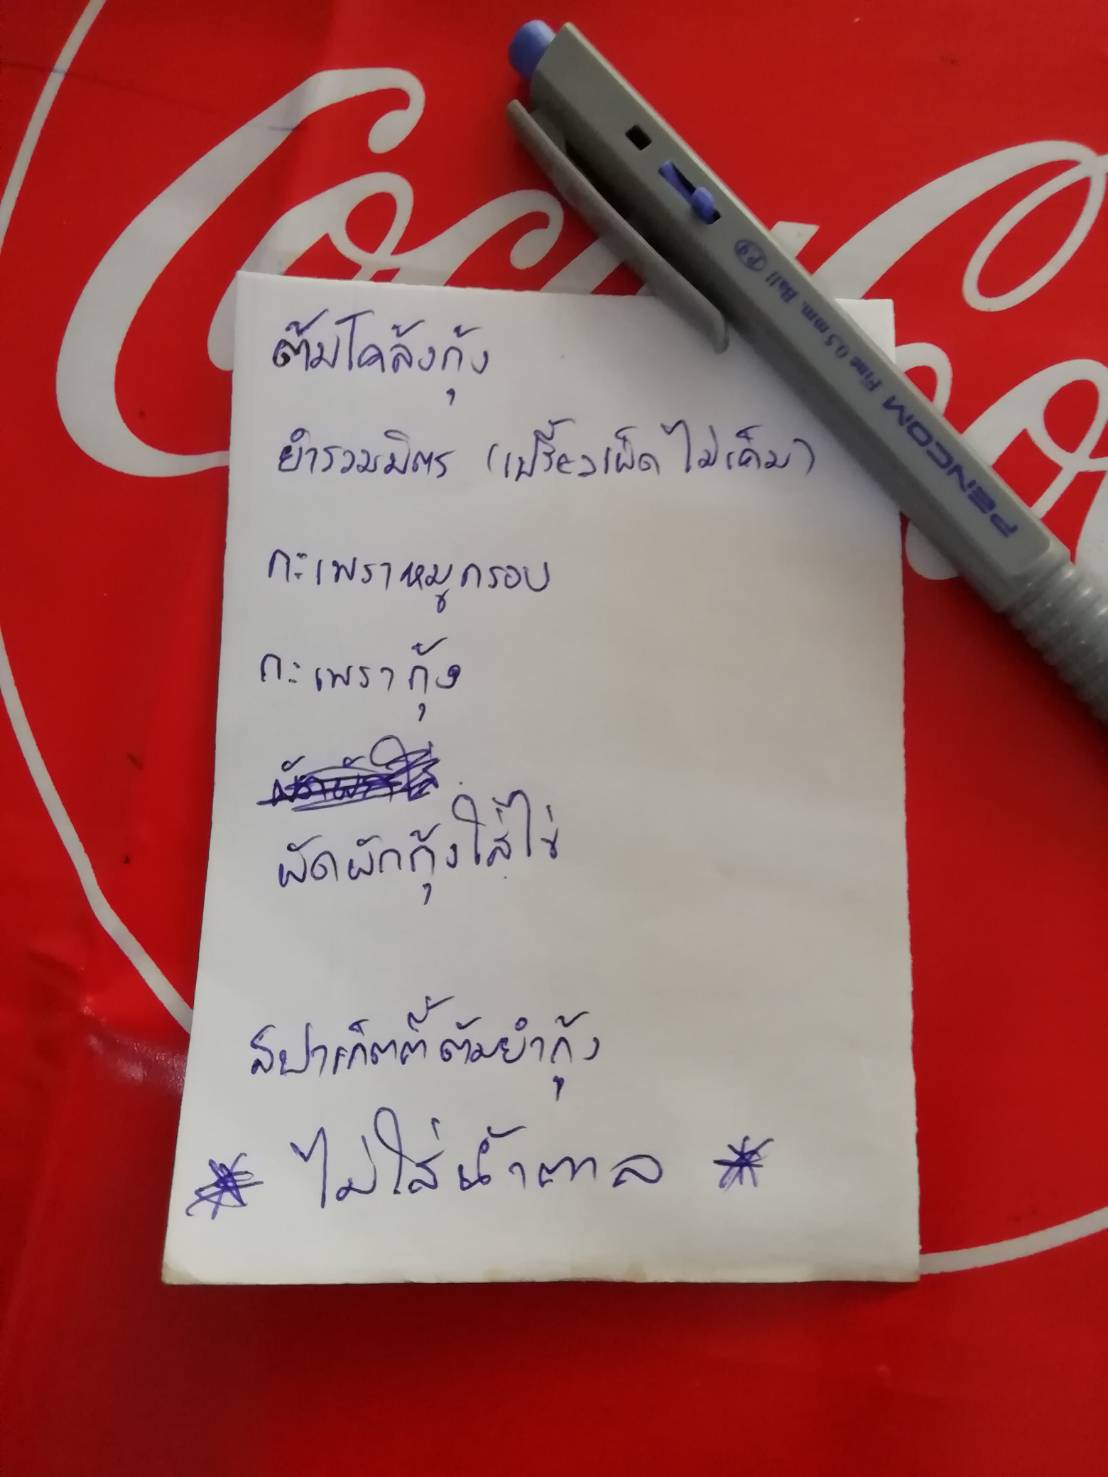 Coca-Cola
PENCOM Fine 0.5 mm. Ball
ต้มโคล้งกุ้ง
ยำรวมมิตร (เปรี้ยวเผ็ด ไม่เค็ม)
กะเพราหมูกรอบ
กะเพรากุ้ง
ผัดผักกุ้งใส่ไข่
สปาเก็ตตี้ต้มยำกุ้ง
* ไม่ใส่น้ำตาล *